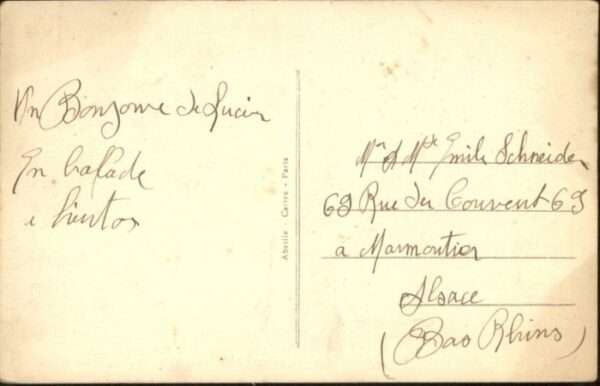 Un Bonjour de Lucien
En balade
a bientot
Abeille - Cartes - Paris
Mr & Mde Emile Schneider
69 Rue du Couvent 69
a Marmoutier
Alsace
(Bas Rhins)